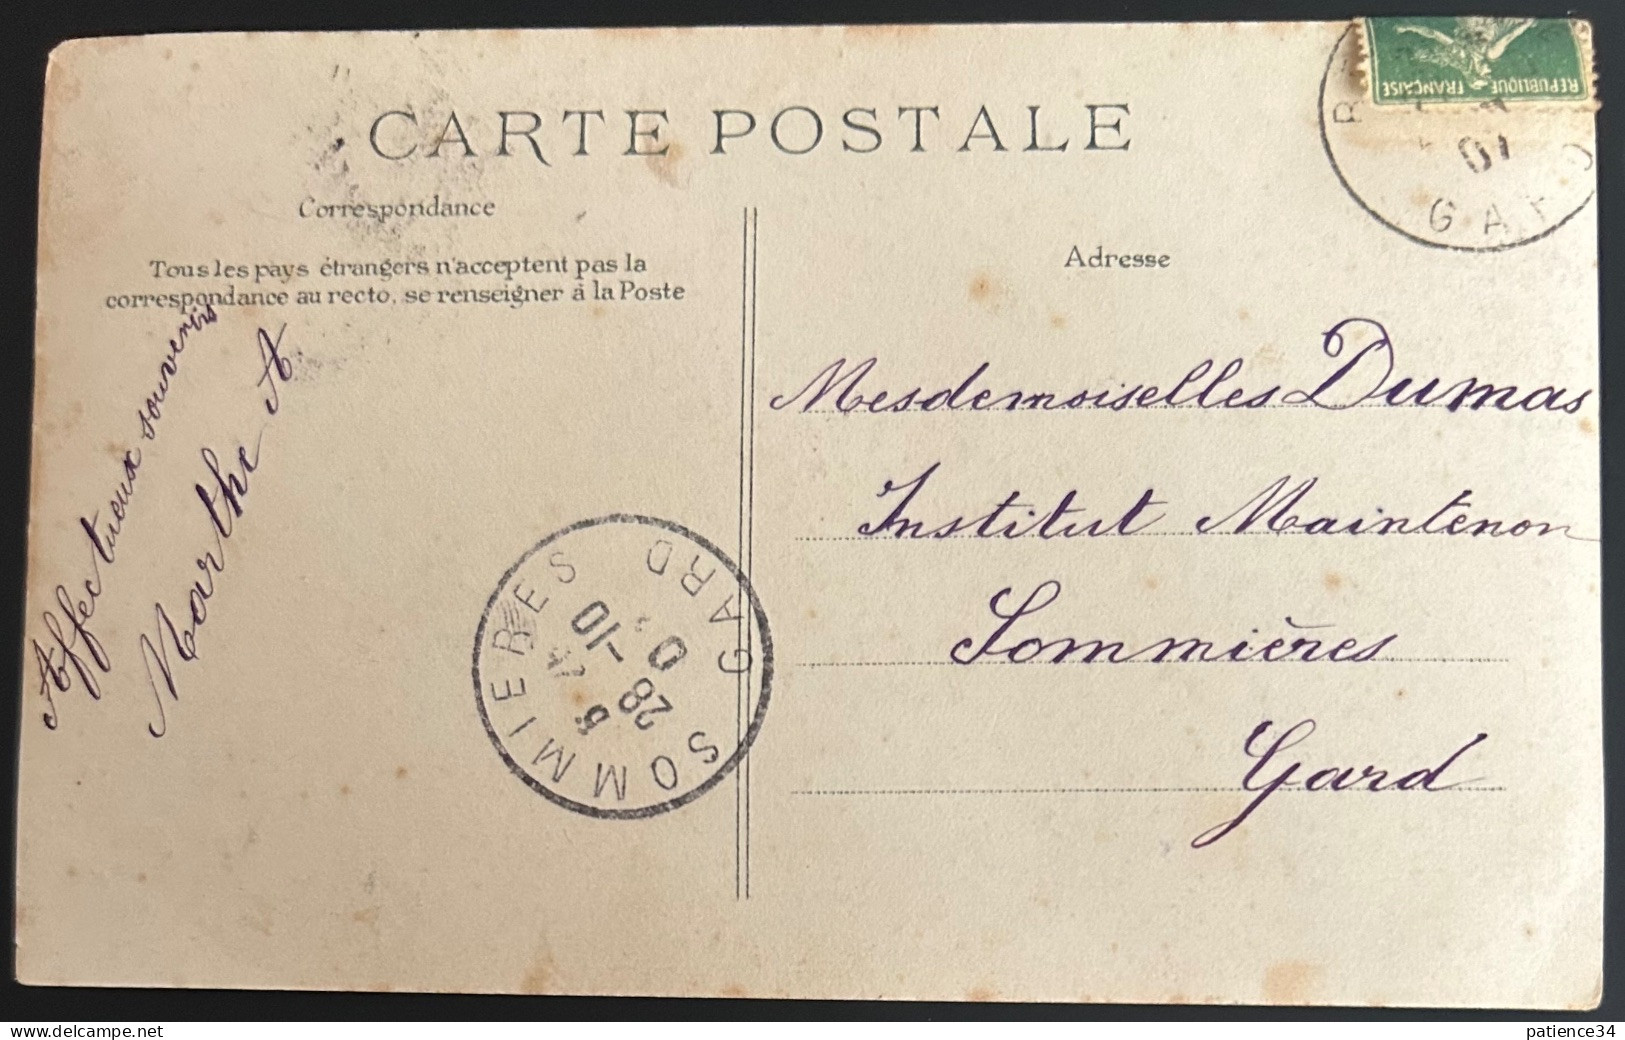 CARTE POSTALE
Correspondance
Tous les pays étrangers n'acceptent pas la
correspondance au recto, se renseigner à la Poste
Affectueux souvenirs
Marthe A
Adresse
Mesdemoiselles Dumas
Institut Maintenon
Sommières
Gard
REPUBLIQUE FRANÇAISE
07
GARD
SOMMIERES GARD
28 -10
patience34